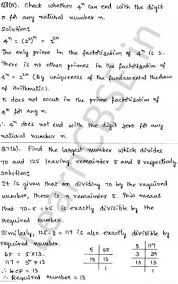 Q7(a). Check whether 4ⁿ can end with the digit
0 for any natural number n.
Solution:
4ⁿ = (2²)ⁿ = 2²ⁿ
The only prime in the factorisation of 4ⁿ is 2.
There is no other primes in the factorisation of
4ⁿ = 2²ⁿ (By uniqueness of the fundamental theorem
of Arithmetic).
5 does not occur in the prime factorisation of
4ⁿ for any n.
∴ 4ⁿ does not end with the digit zero for any
natural number n.
Q7(b). Find the largest number which divides
70 and 125 leaving remainder 5 and 8 respectively.
Solution:
It is given that on dividing 70 by the required
number, there is a remainder 5. This means
that 70-5 = 65 is exactly divisible by the
required number.
Similarly, 125-8 = 117 is also exactly divisible by
required number.
65 = 5×13
117 = 3²×13
∴ HCF = 13
∴ Required number = 13
5 65
13 13
1
3 117
3 39
13 13
1